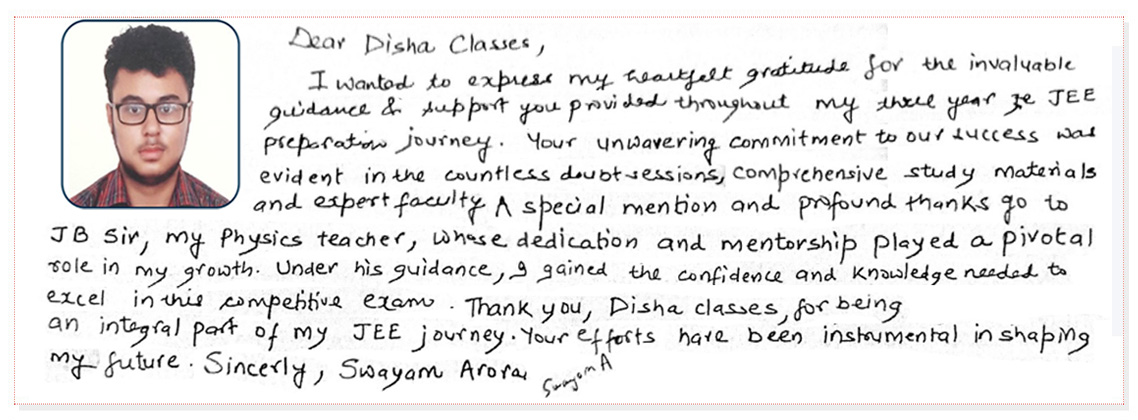 Dear Disha Classes,
I wanted to express my heartfelt gratitude for the invaluable
guidance & support you provided throughout my three year JEE
preparation journey. Your unwavering commitment to our success was
evident in the countless doubt sessions, comprehensive study materials
and expert faculty A special mention and profound thanks go to
JB Sir, my Physics teacher, whose dedication and mentorship played a pivotal
role in my growth. Under his guidance, I gained the confidence and knowledge needed to
excel in this competitive exam. Thank you, Disha classes, for being
an integral part of my JEE journey. Your efforts have been instrumental in shaping
my future. Sincerly, Swayam Arora
Swayam A